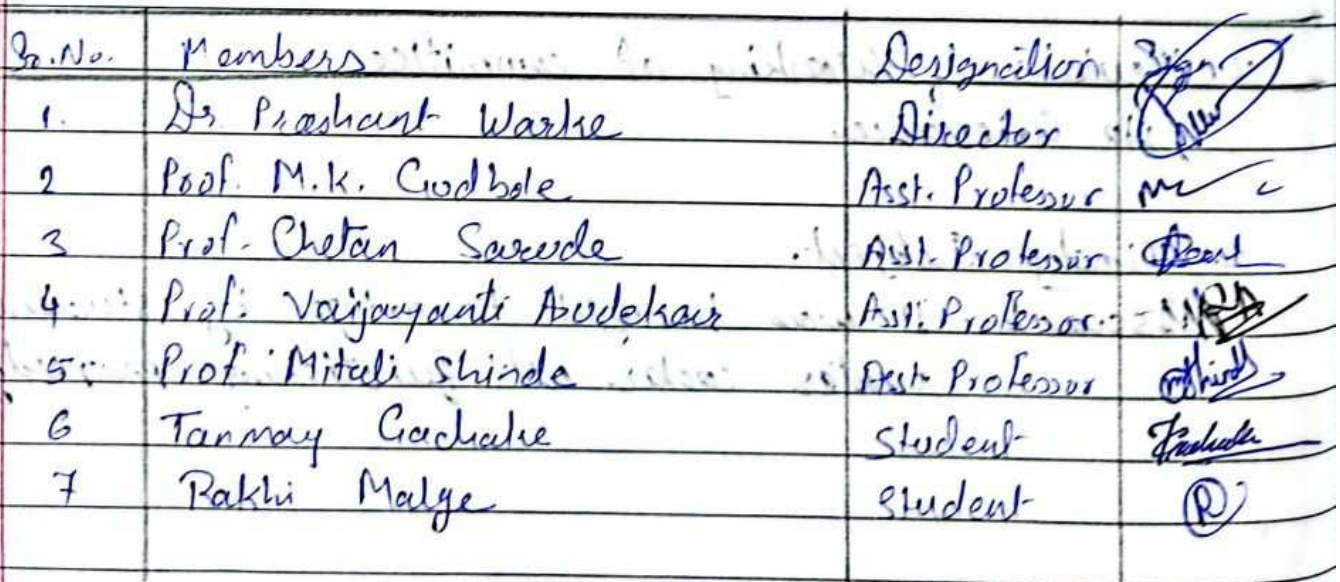 Sr.No. Members Designation Sign
1. Dr Prashant Warke Director
2 Prof. M.K. Godbole Asst. Professor
3 Prof. Chetan Sarode Asst. Professor
4. Prof. Vaijayanti Asst. Professor
5 Prof. Mitali Shinde Asst. Professor
6 Tanmay Student
7 Rakhi Malge Student